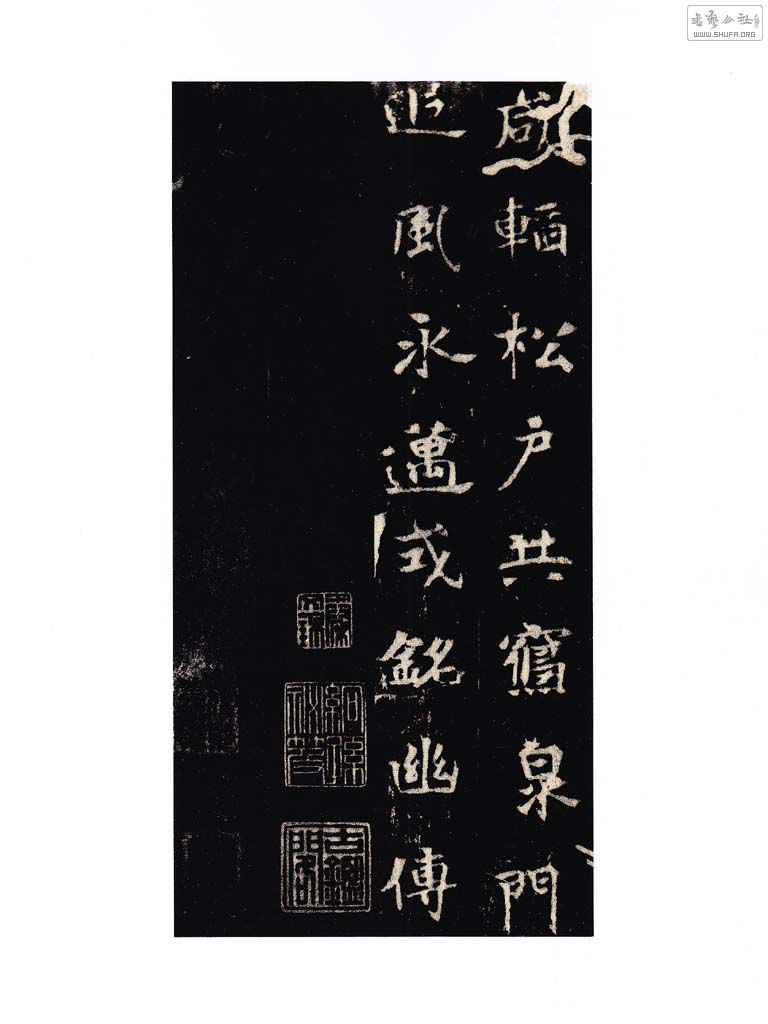 書藝公社
WWW.SHUFA.ORG
輀松户共寫泉門
追風永邁式銘幽傳